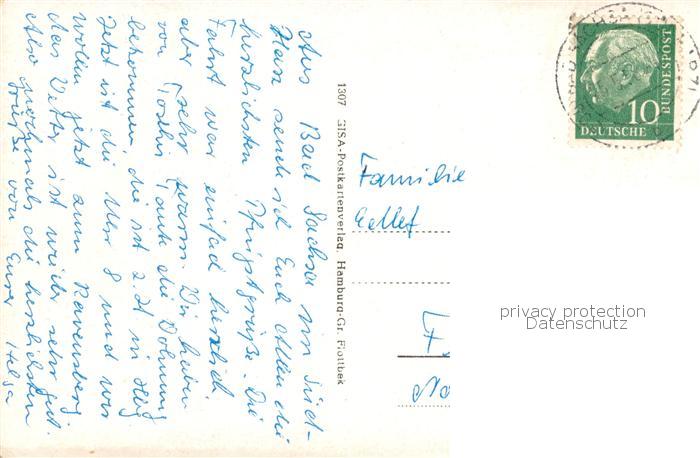 Aus Bad Sachsa im Süd-
Harz sende ich Euch Allen die
herzlichsten Pfingstgrüße. Die
Fahrt war einfach herrlich
aber sehr warm. Wir haben
von Tante die Wohnung
bekommen, die ist z. Zt in Hbg
Jetzt ist die Uhr 8 und wir
wollen jetzt zum Ravensberg
das Wetter ist weiter sehr gut.
Also nochmals die herzlichsten
Grüße von Eurer Helga
1307 GISA-Postkartenverlag, Hamburg-Gr. Flottbek
10
DEUTSCHE
BUNDESPOST
BAD SACHSA
Familie
privacy protection
Datenschutz